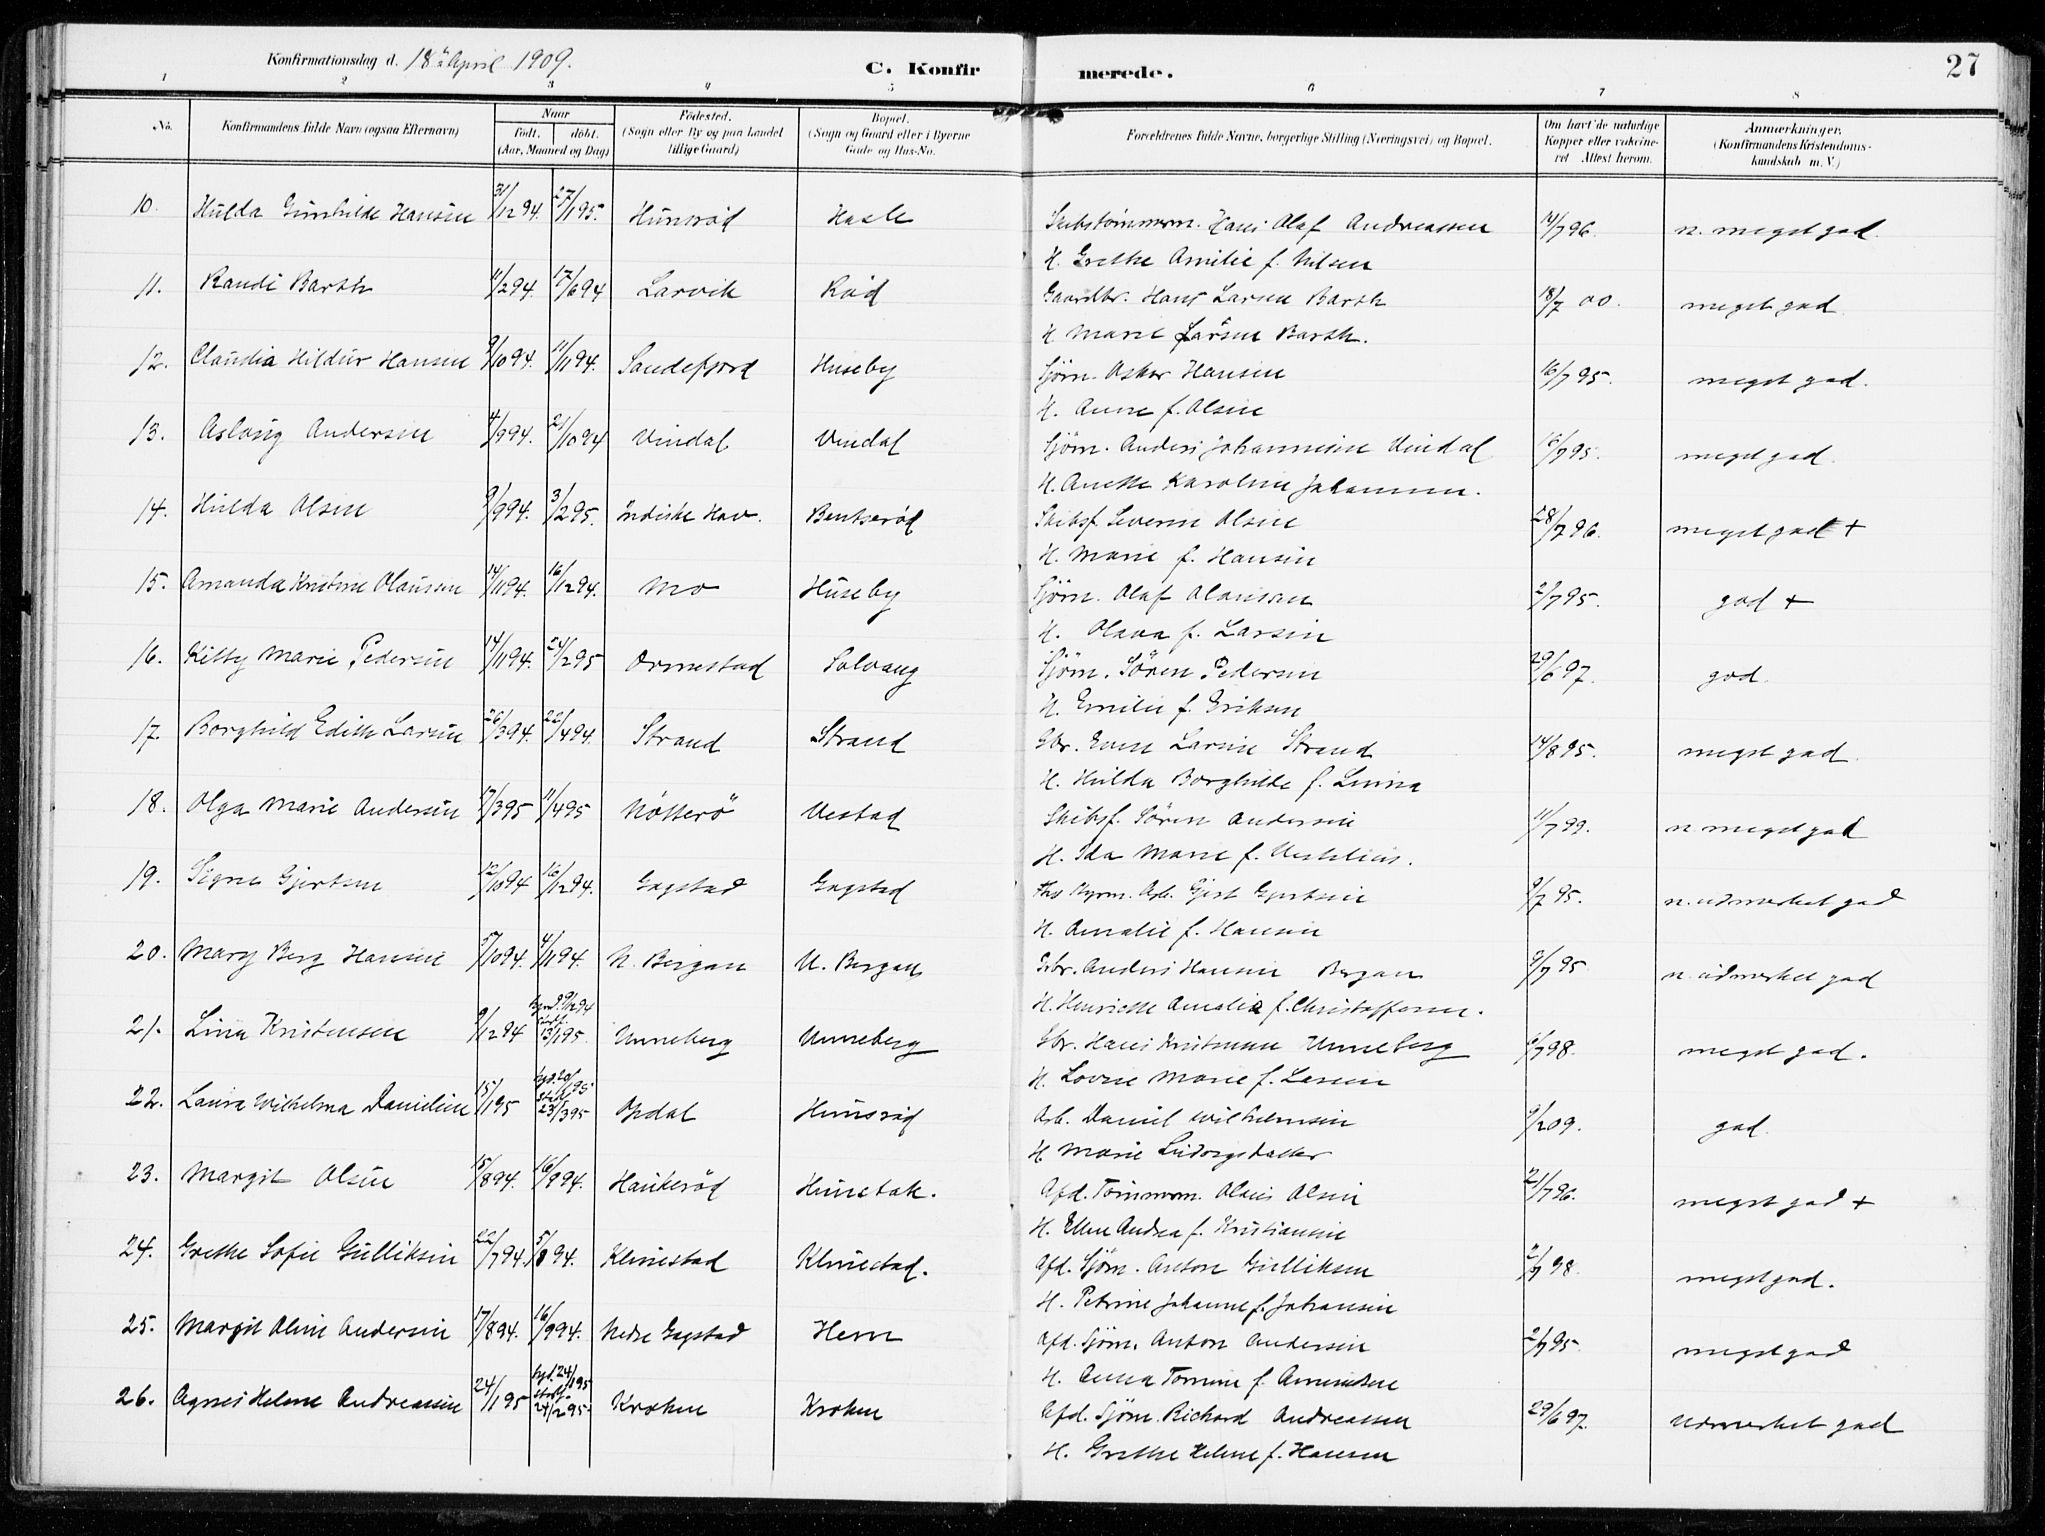 Konfirmationsdag d. 18de April 1909.
C. Konfirmerede.
27
1 2 3 4 5 6 7 8
No. Konfirmandens fulde Navn (ogsaa Efternavn) Naar født. døbt. (Aar, Maaned og Dag) Fødested. (Sogn eller By og paa Landet tillige Gaard) Bopæl. (Sogn og Gaard eller i Byerne Gade og Hus-No. Forældrenes fulde Navne, borgerlige Stilling (Næringsvei) og Bopæl. Om havt de naturlige Kopper eller vakcineret Attest herom. Anmærkninger. (Konfirmandens Kristendomskundskab m. V.)
10. Hulda Gunhilde Hansen 31/12 94. 27/1 95. Hunsrød Hasle Skibstømmerm. Hans Olaf Andreassen 14/7 96. n. meget god.
H. Grethe Amilie f. Nilsen
11. Randi Barth 11/2 94. 17/6 94 Larvik Rød Gaardbr. Hans Larsen Barth 18/7 00. meget god
H. Marie Larsen Barth.
12. Claudia Hildur Hansen 9/10 94. 11/11 94. Sandefjord Huseby Sjøm. Asker Hansen 16/7 95. meget god.
H. Anne f. Olsen
13. Aslaug Andersen 4/9 94. 21/10 94 Vindal Vindal Sjøm. Anders Johannesen Vindal 16/7 95. meget god.
H. Anette Karoline Johannesen.
14. Hulda Olsen 9/9 94. 3/2 95. Indiske Hav. Bentserød Skibsf. Severin Olsen 28/7 96. meget god +
H. Marie f. Hansen
15. Amanda Kristine Olausen 14/11 94. 16/12 94. Mo Huseby Sjøm. Olaf Olausen 2/7 95. god +
H. Olava f. Larsen
16. Kitty Marie Pedersen 14/11 94. 24/2 95 Ormestad Solvang Sjøm. Søren Pedersen 29/6 97. god.
H. Emilie f. Eriksen
17. Borghild Edith Larsen 26/3 94. 22/4 94. Strand Strand Gbr. Even Larsen Strand 14/8 95. meget god.
H. Hulda Borghilde f.
18. Olga Marie Andersen 17/3 95 11/4 95 Nøtterö Vestad Skibsf. Søren Andersen 11/7 99. n. meget god
H. Ida Marie f.
19. Signe Gjertsen 12/10 94 16/12 94. Gogstad Gogstad Gjert Gjertsen 9/7 95. n. udmerket god
H. Amalie f. Hansen
20. Mary Berg Hansen 5/10 94. 4/11 94. N. Bergan N. Bergan Gbr. Anders Hansen Bergan 9/7 95 n. udmerket god
H. Henriette Amalie f. Christoffersen.
21. Lina Kristensen 9/12 94 hjmd. 9/12 94 stadf. 13/1 95. Unneberg Unneberg Gbr. Hans Kristensen Unneberg 6/7 98. meget god.
H. Lovise Marie f. Larsen
22. Laura Wilhelma Danielsen 15/1 95 hjd. 20/1 95 stadf. 23/3 95 Opdal Hunsrød Arb. Daniel Wilhelmsen 9/2 09. god.
H. Marie Ludvigsdatter
23. Margit Olsen 15/8 94. 16/9 94. Haukerød Hunstok. Afd. Tømmerm. Olaus Olsen 21/7 96. meget god +
H. Ellen Andrea f. Kristiansen
24. Grethe Sofie Gulliksen 22/7 94. 5/8 94. Klinestad Klinestad. Afd. Sjøm. Anton Gulliksen 2/7 98. meget god.
H. Petrine Johanne f. Johansen
25. Margit Oline Andersen 17/8 94. 16/9 94. Nedre Gogstad Hem Afd. Sjøm. Anton Andersen 2/7 95. meget god
H. Anna Tomine f. Amundsen
26. Agnes Helene Andreassen 24/1 95 hjd. 24/1 95 stadf. 24/2 95. Kroken Kroken Afd. Sjøm. Richard Andreassen 29/6 97. udmerket god
H. Grethe Helene f. Hansen